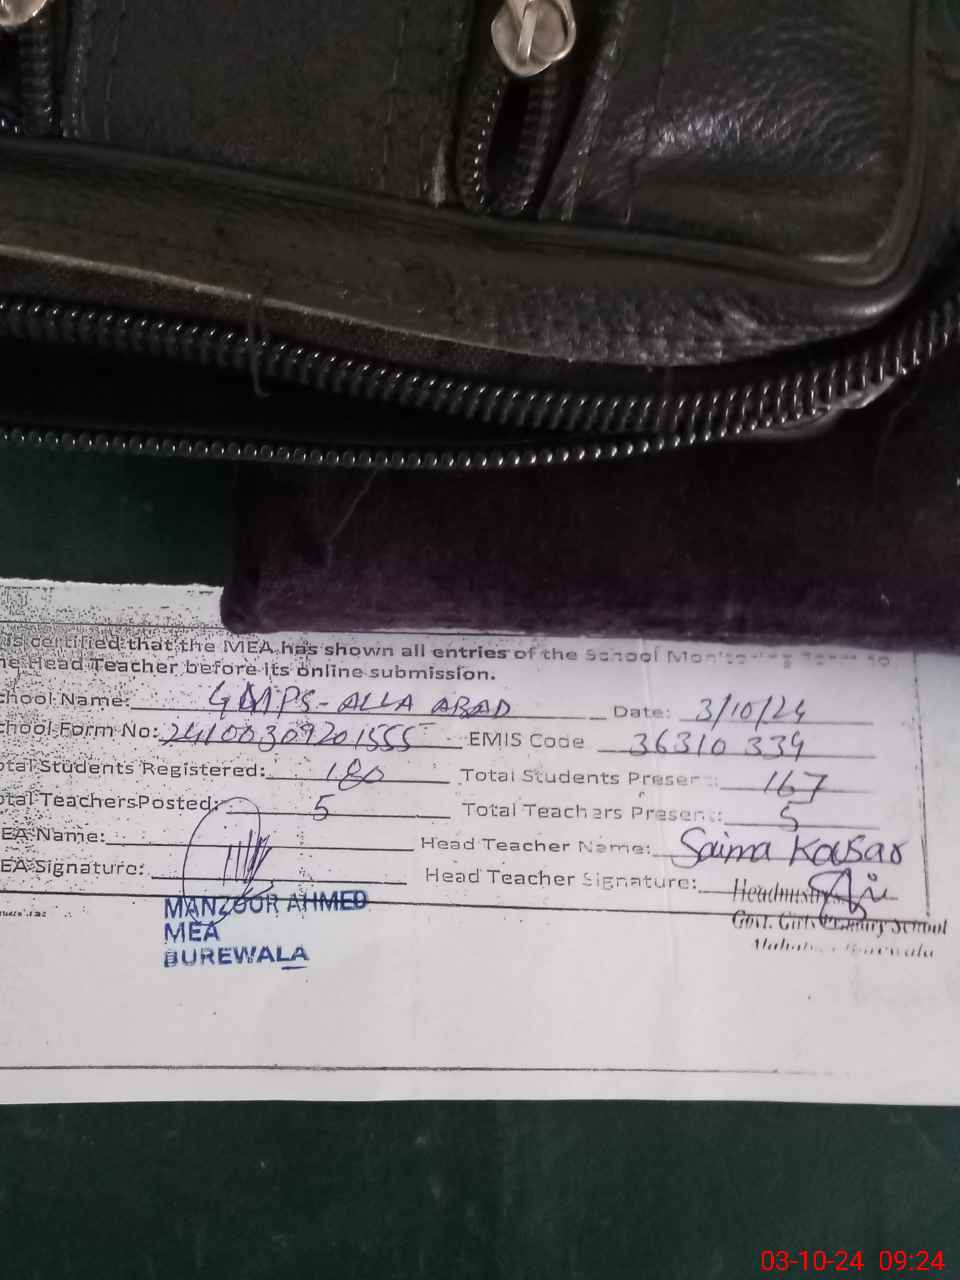 is certified that the MEA has shown all entries of the School
he Head Teacher before its online submission.
chool Name: GMPS-ALLA ABAD Date: 3/10/24
chool Form No: 24100309201555 EMIS Code 36310334
otal Students Registered: 180 Total Students Present: 167
otal TeachersPosted: 5 Total Teachers Present: 5
EA Name: Head Teacher Name: Saima Kousar
EA Signature: Head Teacher Signature:
MANZOOR AHMED
MEA
BUREWALA
Headmistress
Govt. Girls Primary School
Burewala
03-10-24 09:24